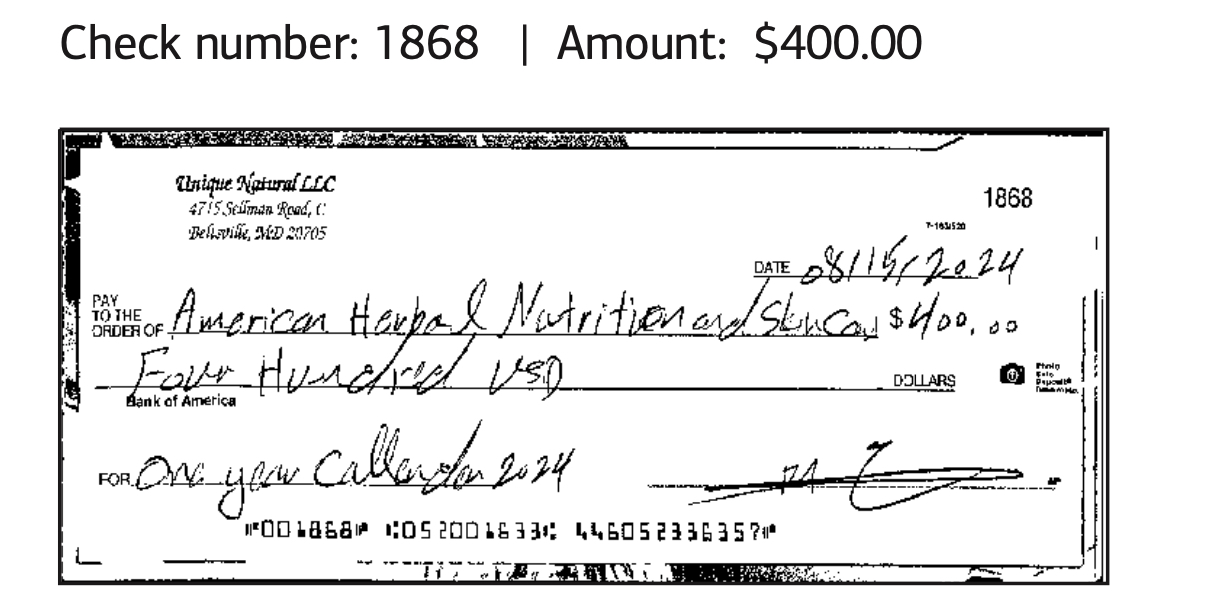 Check number: 1868 | Amount: $400.00
Unique Natural LLC
4715 Sellman Road, C
Beltsville, MD 20705
1868
7-163/520
DATE 08/15/2024
PAY
TO THE
ORDER OF American Herbal Nutrition and SkinCare $400.00
Four Hundred USD
DOLLARS
Photo
Safe
Deposit®
Bank of America
FOR One year Callendar 2024
MP
⑈001868⑈ ⑆052001633⑆ 446052336357⑈